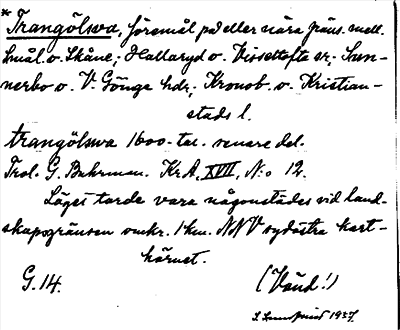 * Trangölswa, föremål på eller nära gräns. mell.
Smål. o. Skåne; Hallaryd o. Visseltofte sr; Sun-
nerbo o. V. Göinge hdr; Kronob. o. Kristian-
stads l.
trangölswa 1600-tal. senare del.
Trol. G. Buhrman. Kr.A. XVII, N:o 12.
Läget torde vara någonstädes vid land-
skapsgränsen omkr. 1 km. NNV sydöstra kart-
hörnet.
G. 14. (Vänd!)
1937.